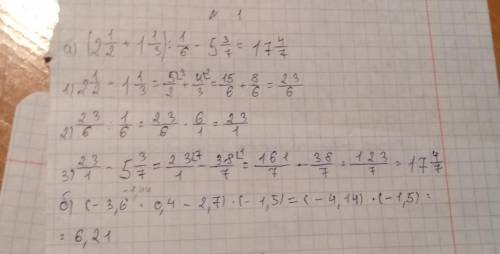 N 1
а) (2 1/2 + 1 1/3) : 1/6 - 5 3/7 = 17 4/7
1) 2 1/2 + 1 1/3 = 5/2 + 4/3 = 15/6 + 8/6 = 23/6
2) 23/6 : 1/6 = 23/6 · 6/1 = 23/1
3) 23/1 - 5 3/7 = 23/1 - 38/7 = 161/7 - 38/7 = 123/7 = 17 4/7
б) (-3,6 · 0,4 - 2,7) · (-1,5) = (-4,14) · (-1,5) =
= 6,21